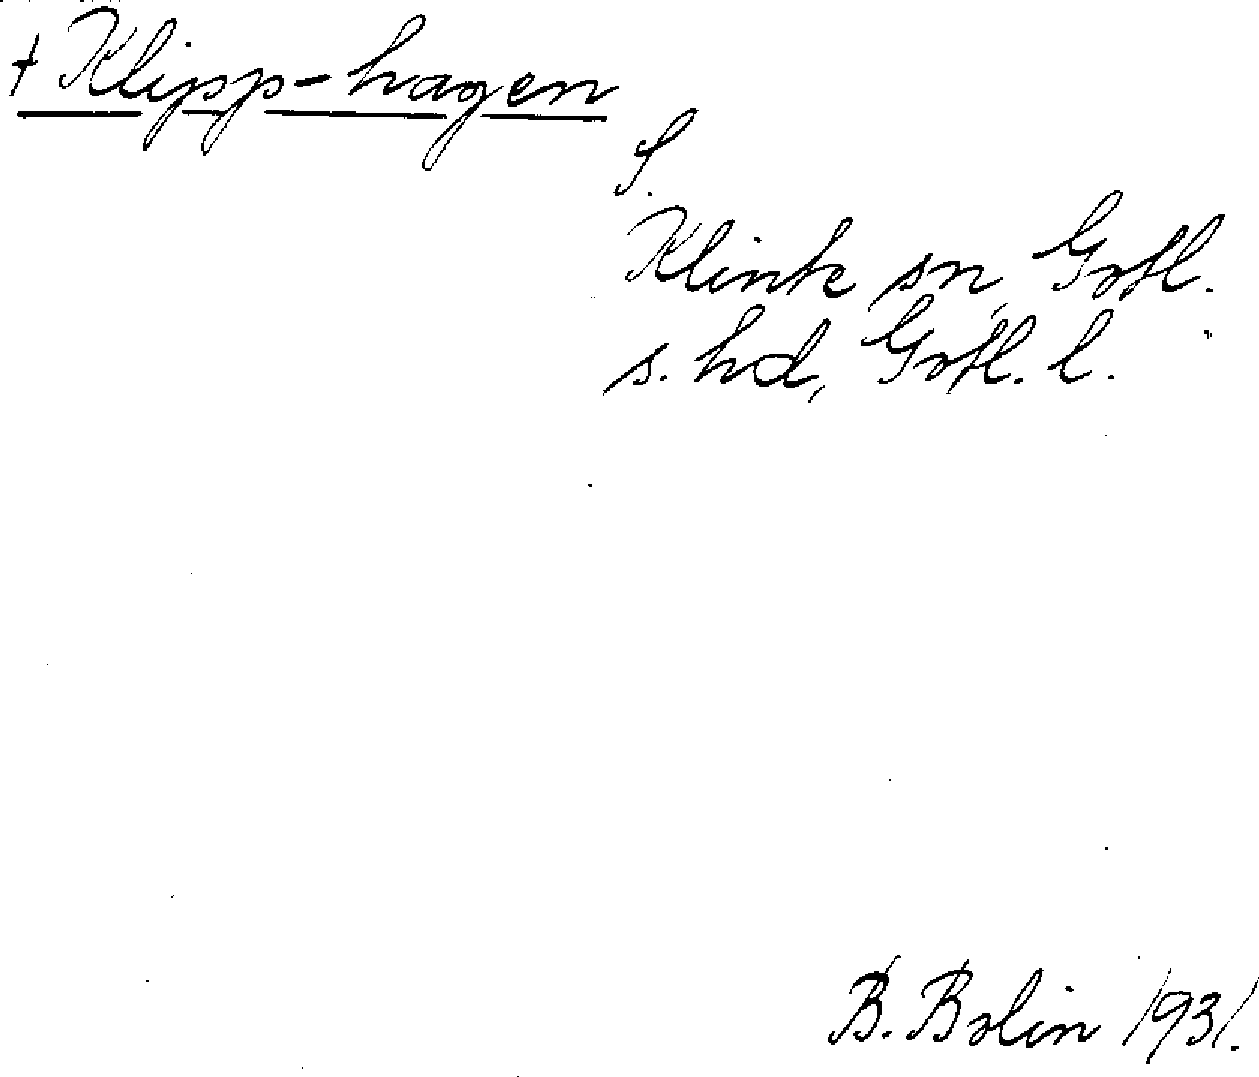 + Klipp-hagen
S.
Klinte sn, Gotl.
s. hd, Gotl. l.
B. Bolin 1931.